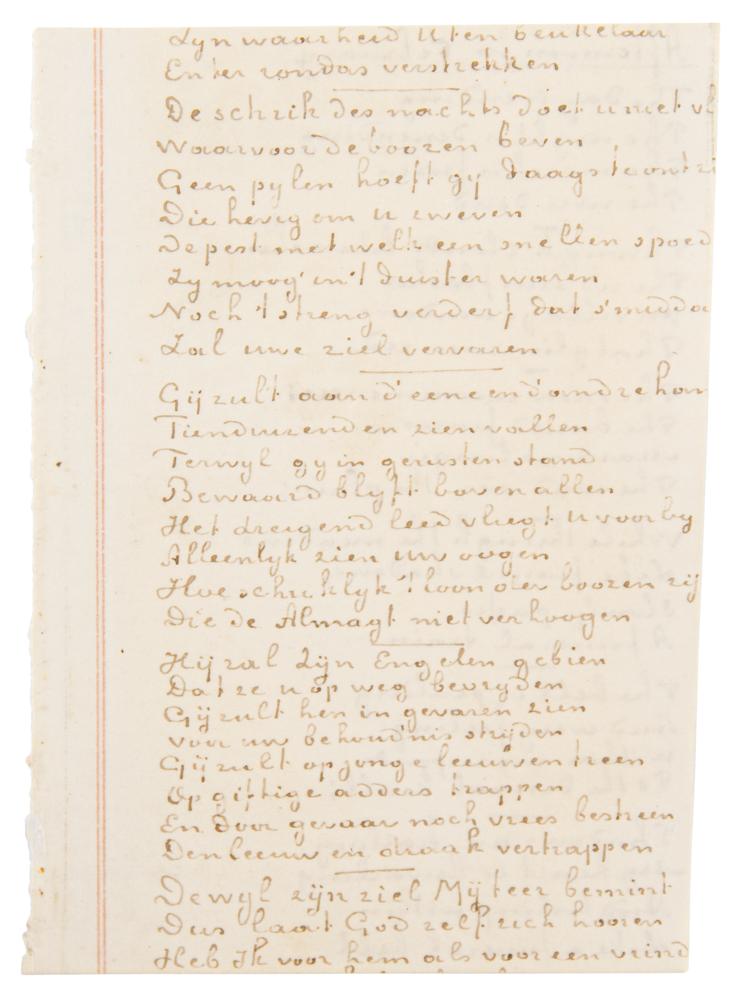 Zyn waarheid U ten beukelaar
En ter rondas verstrekken
De schrik des nachts doet u niet vl
Waarvoor de boozen beven
Geen pylen hoeft gy daags te ontzi
Die hevig om u zweven
De pest met welk een snellen spoed
Zy moog' in 't duister waren
Noch 't streng verderf dat s'midda
Zal uwe ziel vervaren
Gij zult aan d'eene en d'andre han
Tienduizenden zien vallen
Terwyl gy in gerusten stand
Bewaard blyft boven allen
Het dreigend leed vliegt u voor by
Alleenlyk zien uw oogen
Hoe schriklyk 't loon der boozen zij
Die de Almagt niet verhoogen
Hij zal Zijn Engelen gebien
Dat ze u op weg bevryden
Gij zult hen in gevaren zien
voor uw behoud'nis stryden
Gij zult op jonge leeuwen treen
Op giftige adders trappen
En door gevaar noch vrees bestreen
Den leeuw en draak vertrappen
Dewyl zijn ziel Mij teer bemint
Dus laat God zelf zich hooren
Heb Ik voor hem als voor een vrind